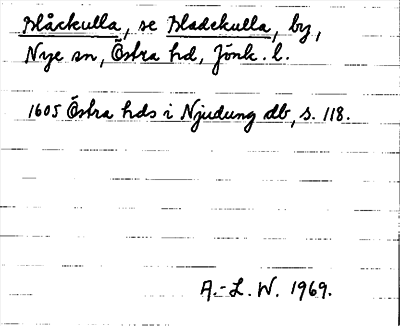 Blåckulla, se Bladekulla, by,
Nye sn, Östra hd, Jönk. l.
1605 Östra hds i Njudung db, s. 118.
A.-L. W. 1969.